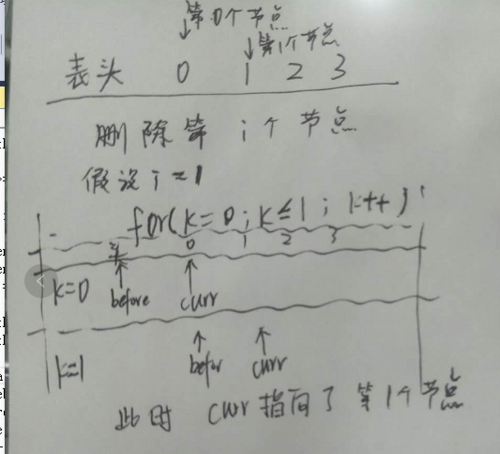 第0个节点
↓ ↓第1个节点
表头 0 1 2 3
删除第 i 个 节点
假设 i=1
for(k=0;k≤1;k++)
0 1 2 3
↑ ↑
k=0 before curr
↑ ↑
k=1 befor curr
此时 curr 指向了 第1个节点